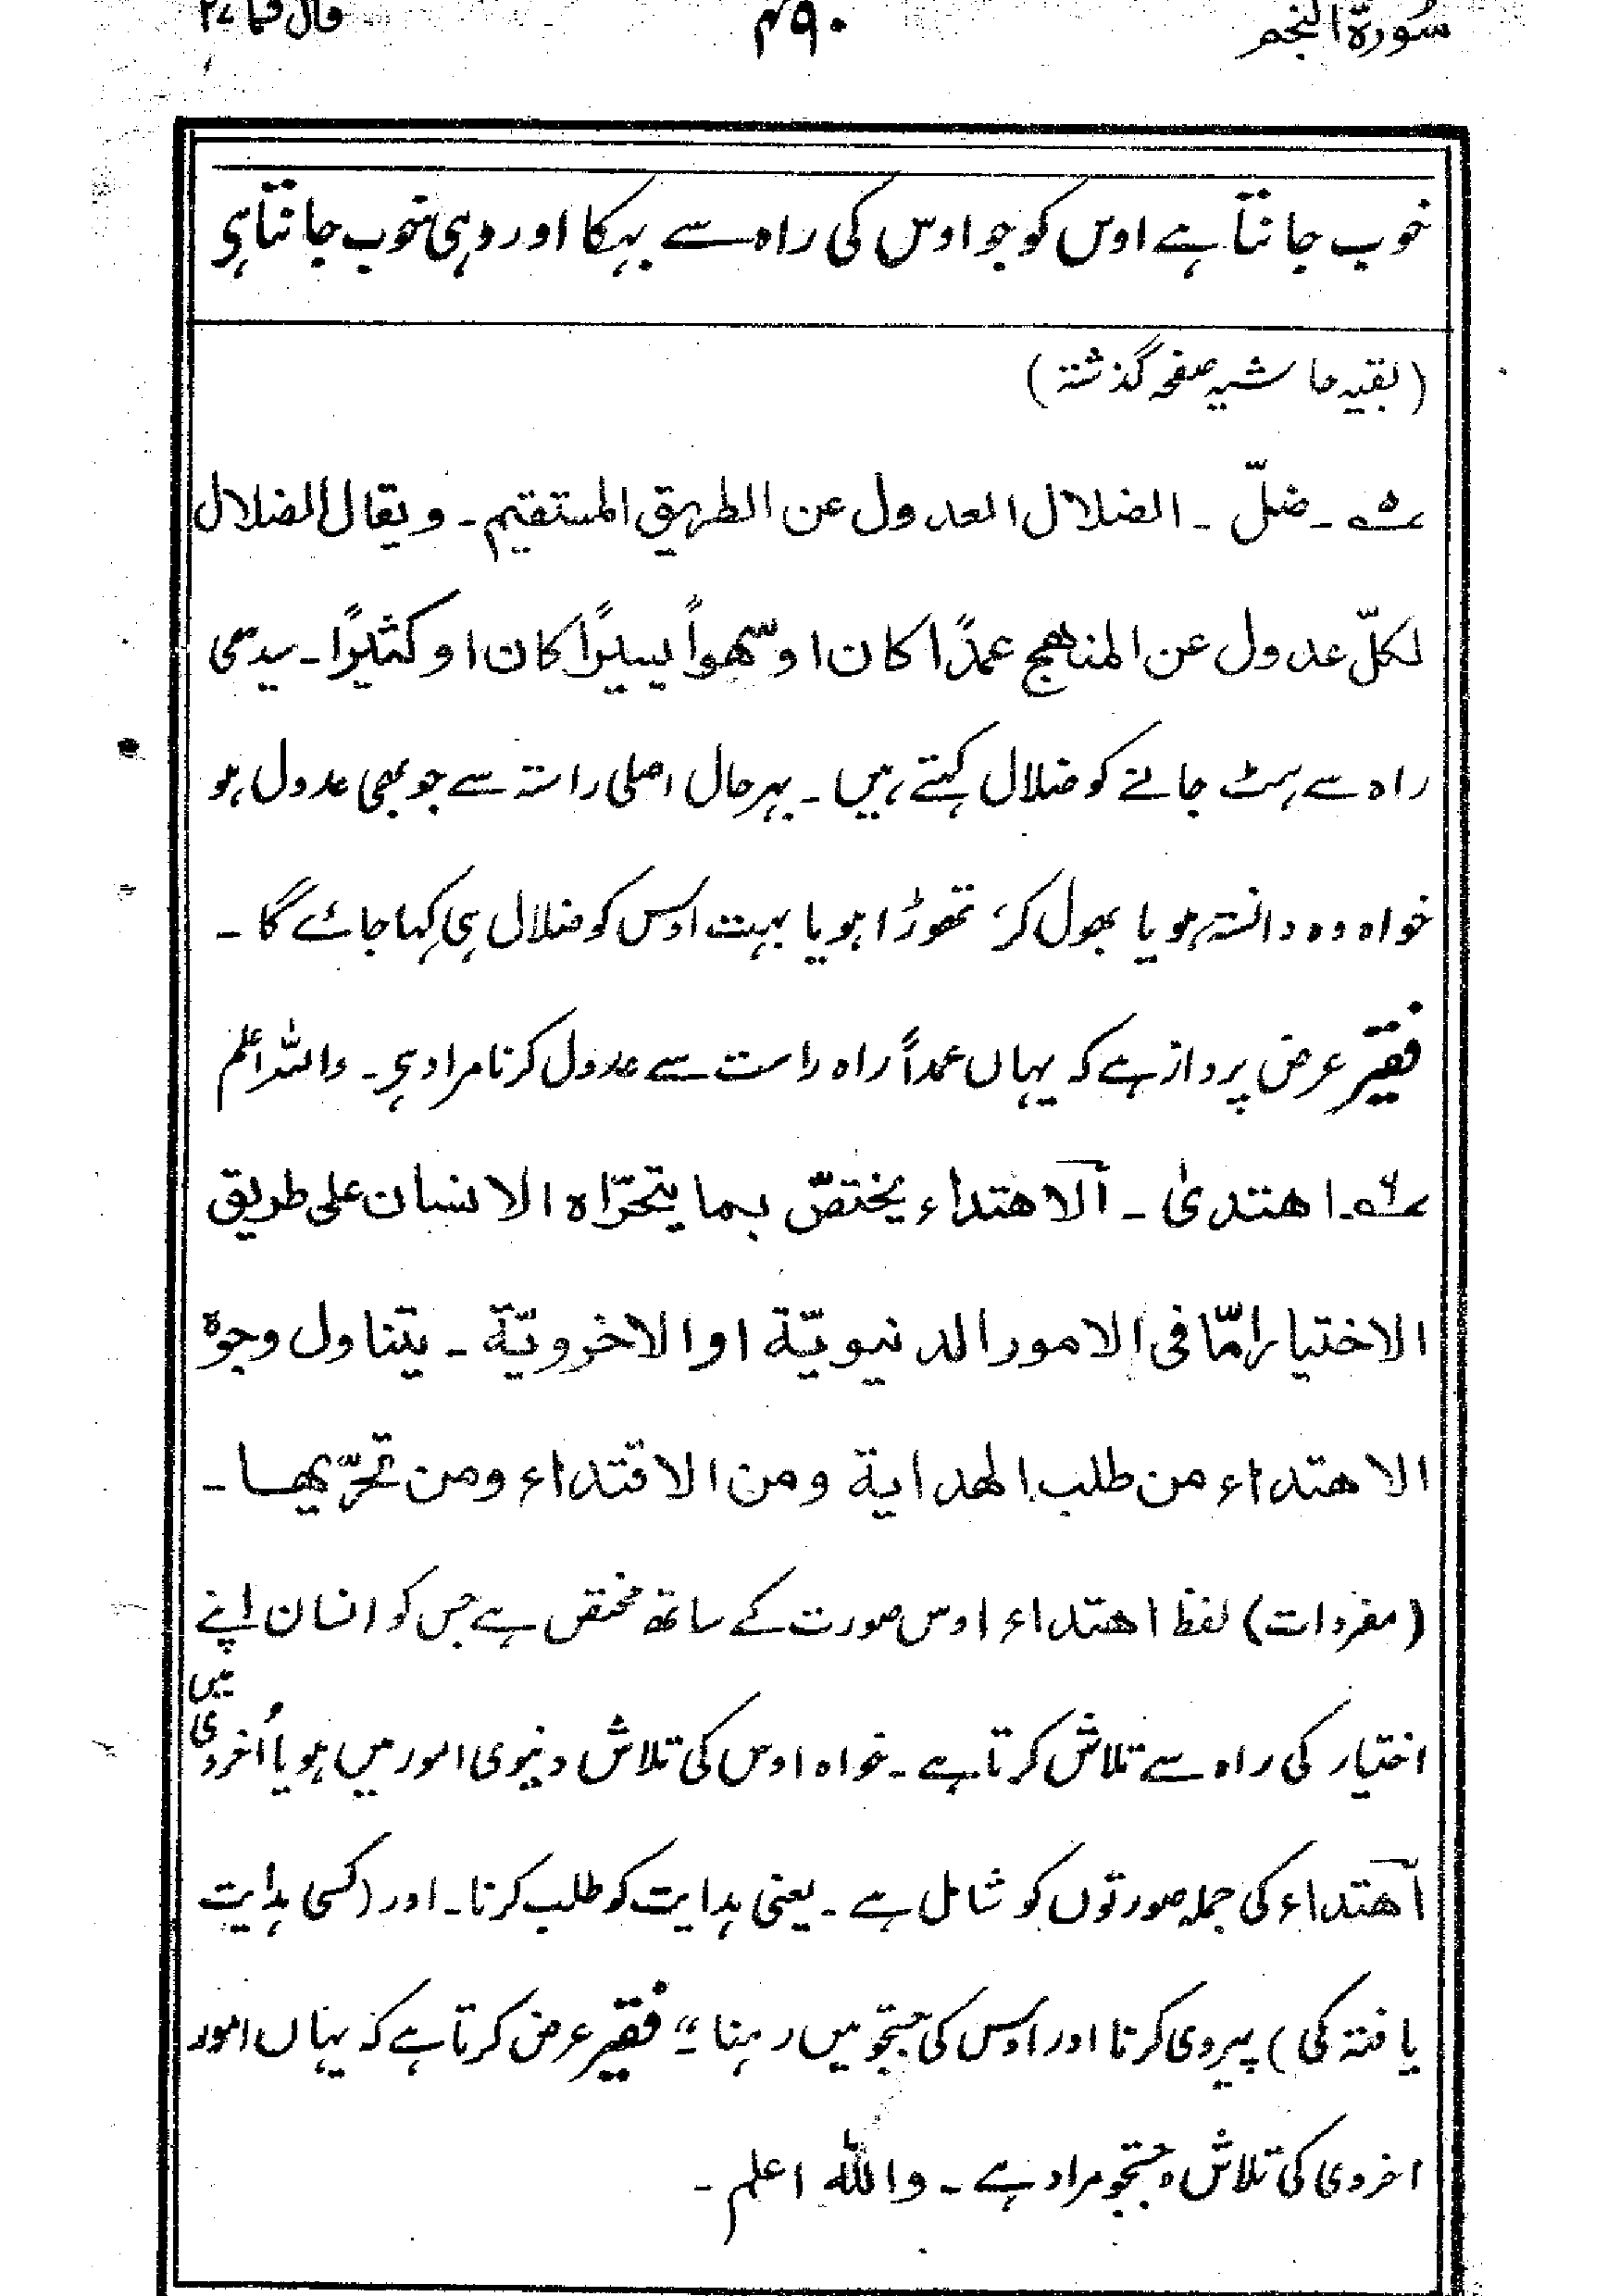 سُورۃ النجم ۴۹۰ قال فما ۲۷
خوب جانتا ہے اوس کو جو اوس کی راہ سے بہکا اور وہی خوب جانتا ہی
(بقیہ حاشیہ صفحہ گذشتہ)
۵ـ ضلّ ـ الضلال العدول عن الطریق المستقیم ـ ویقال الضلال
لکلّ عدول عن المنهج عمدًا کان او سهواً یسیرًا کان او کثیرًا ـ سیدھی
راہ سے ہٹ جانے کو ضلال کہتے ہیں ـ بہرحال اصلی راستہ سے جو بھی عدول ہو
خواہ وہ دانستہ ہو یا بھول کر، تھوڑا ہو یا بہت اوس کو ضلال ہی کہا جائے گا ـ
فقیر عرض پرداز ہے کہ یہاں عمداً راہ راست سے عدول کرنا مراد ہی ـ واللہ اعلم
۶ـ اهتدیٰ ـ آلاهتداء یختصّ بما یتحرّاه الانسان علی طریق
الاختیار امّا فی الامور الدنیویّة او الاخرویّة ـ یتناول وجوہ
الاهتداء من طلب الهدایة ومن الاقتداء ومن تحرّیها ـ
(مفردات) لفظ اهتداء اوس صورت کے ساتھ مختص ہے جس کو انسان اپنے
اختیار کی راہ سے تلاش کرتا ہے ـ خواہ اوس کی تلاش دنیوی امور میں ہو یا اُخروی میں
آهتداء کی جملہ صورتوں کو شامل ہے ـ یعنی ہدایت کو طلب کرنا ـ اور (کسی ہدایت
یافتہ کی) پیروی کرنا اور اوس کی جستجو میں رہنا ـ" فقیر عرض کرتا ہے کہ یہاں امور
اخروی کی تلاش و جستجو مراد ہے ـ واللّٰه اعلم ـ